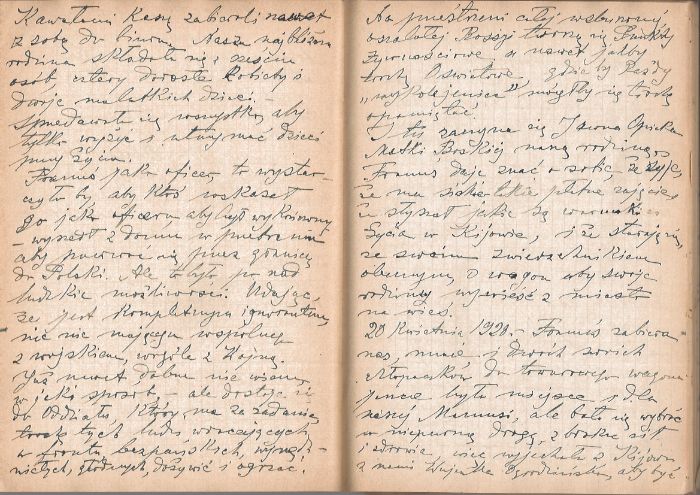 Kawałeczki Kaszy zabierali nawet
z sobą do biura. Nasza najbliższa
rodzina składała się z sześciu
osób, cztery dorosłe Kobiety i
dwoje malutkich dzieci. -
Sprzedawało się wszystko, aby
tylko wyżyć i utrzymać dzieci
przy życiu.
Franuś jako oficer, to wystar-
czyło by, aby ktoś wskazał
go jako oficera aby być wykończony
- wyszedł z domu w przebraniu
aby przerwać się przez granicę
do Polski. Ale było to po nad
ludzkie możliwości. Udając,
że jest kompletnym ignorantem,
nic nie mającym wspólnego
z wojskiem, wogóle z Wojną.
Już nawet dobrze nie wiem,
w jaki sposób - ale dostaje się
do Oddziału który ma za zadanie
tych ludzi wracających
z frontu bezpańskich, wynędz-
niałych, głodnych, dożywić i ogrzać.
Na przestrzeni całej wzburzonej
oszalałej Rosji tworzą się Punkty
żywnościowe, a nawet jakby
trochę Oświatowe, gdzie by Każdy
"wykolejeniec" mógłby się trochę
opamiętać.
I tu zaczyna się Jawna Opieka
Matki Boskiej naszą rodziną.
Franuś daje znać o sobie - że żyje,
że ma jakie takie płatne zajęcie,
że słyszał jakie są warunki
życia w Kijowie, i że stara się,
ze swoim zwierzchnikiem
obecnym, o wagon aby swoje
rodziny wywieść z miasta
na wieś.
20 Kwietnia 1920 - Franuś zabiera
nas, mnie i dwoch swoich
chłopaków do towarowego wagonu
jeszcze było miejsce i dla
naszej Mamusi, ale bała się wybrać
w niepewną drogę, z braku sił
i zdrowia, więc wyjechała z Kijowa
z nami Wujenka Ogrodzińska, aby być